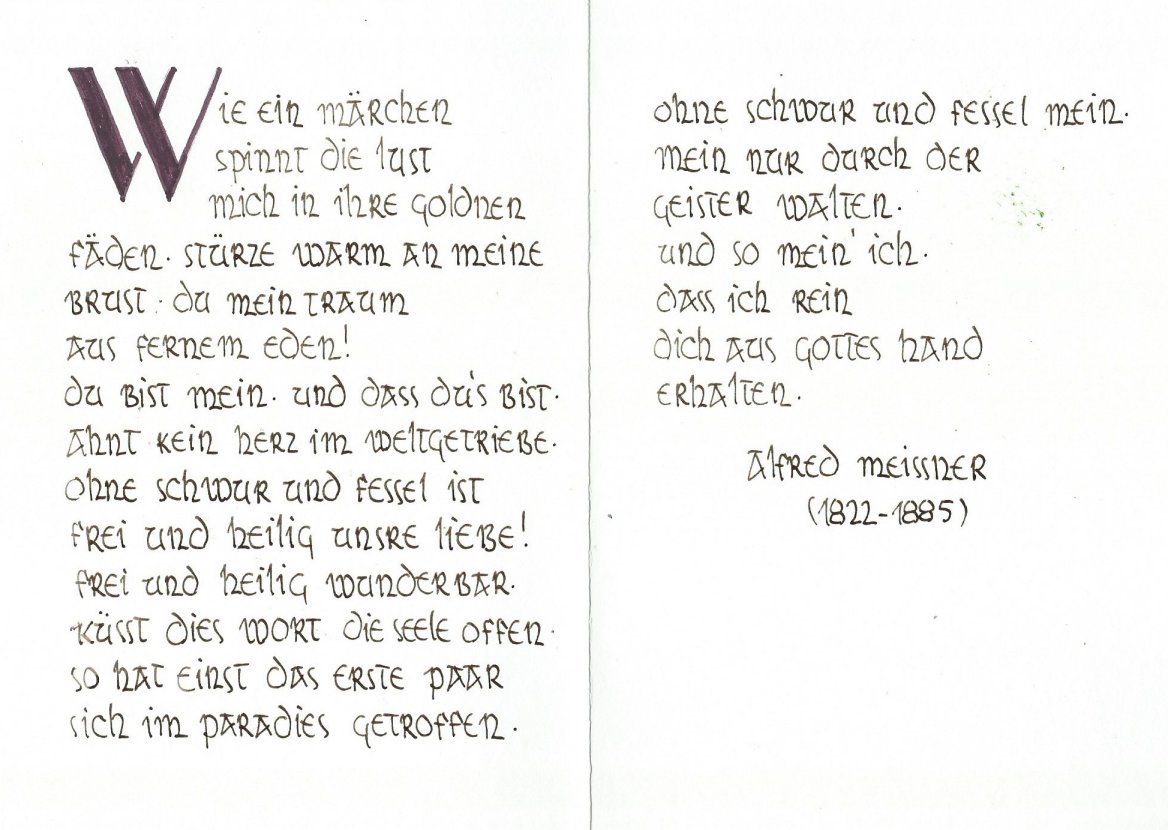 Wie ein märchen
spinnt die lust
mich in ihre goldnen
fäden. stürze warm an meine
brust. du mein traum
aus fernem eden!
du bist mein. und dass du's bist.
ahnt kein herz im weltgetriebe.
ohne schwur und fessel ist
frei und heilig unsre liebe!
frei und heilig wunderbar.
küsst dies wort die seele offen.
so hat einst das erste paar
sich im paradies getroffen.
ohne schwur und fessel mein.
mein nur durch der
geister walten.
und so mein' ich.
dass ich rein
dich aus gottes hand
erhalten.
alfred meissner
(1822-1885)